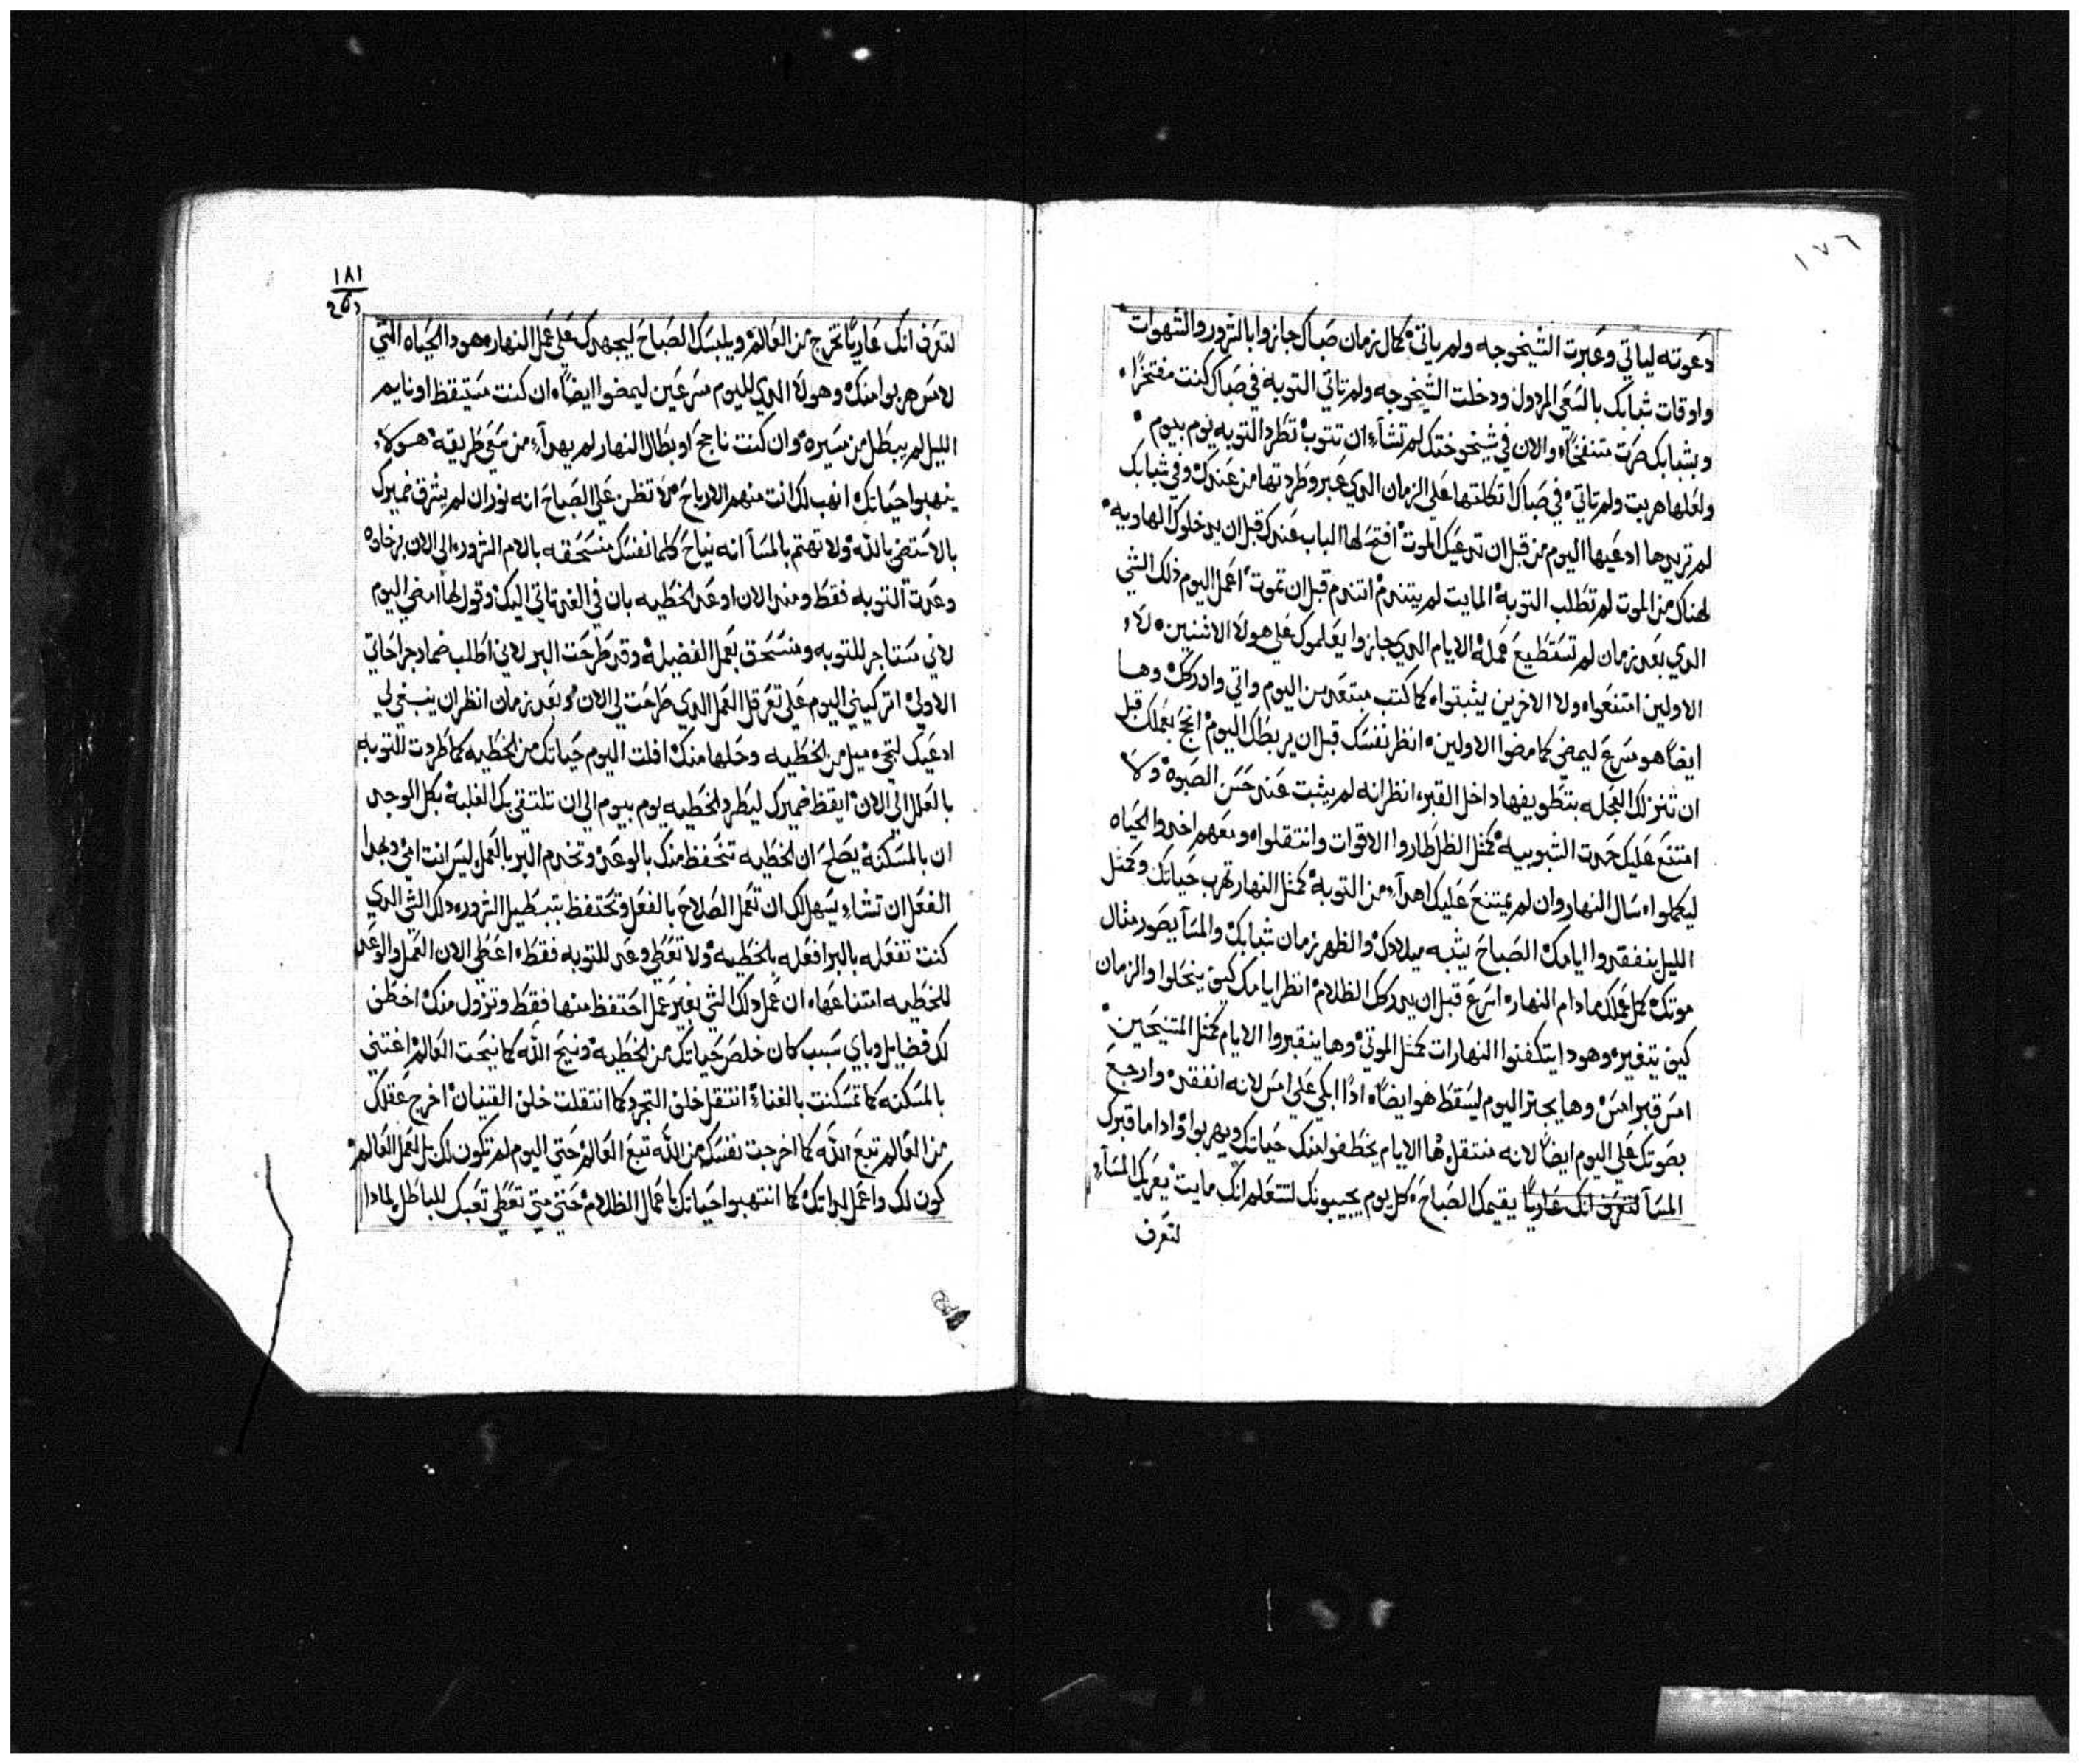 ١٧٦
دعوته لياتي وعبرت الشيخوجه ولم ياتي كمال زمان صباك جازوا بالشرور والشهوات
واوقات شبابك بالسعي المردول ودخلت الشيخوجه ولم تاتي التوبه في صباك كنت مفتخرًا
وبشبابك صرت متنفخًا والان في شيخوختك لم تشآء ان تتوب تطرد التوبه يوم بيوم
ولعلها هربت ولم تاتي في صباك اتكلتها على الزمان الدي عبر وطردتها من عندك وفي شبابك
لم تريدها ادعيها اليوم من قبل ان تدعيك الموت افتح لها الباب عندك قبل ان يدخلوك الهاويه
لهناك من الموت لم تطلب التوبه المايت لم يتندم اتندم قبل ان تموت اعمل اليوم ذلك الشي
الدي بعد زمان لم تستطيع عمله الايام الدي جازوا يعلموك على هولا الاثنين لا
الاولين امتنعوا ولا الاخرين يثبتوا كما كتب مبتعد من اليوم واتي وادركك وها
ايضًا هو مسرع ليمضي كما مضوا الاولين انظر نفسك قبل ان يربطك اليوم انجح بعملك قبل
ان تنزلك العجله بتطويفها داخل القبر انظر انه لم يثبت عندك حسن الصبوه ولا
امتنع عليك حدت الشبوبيه كمثل الظل طاروا الاوقات وانتقلوا ومعهم اخدوا الحياه
ليكملوا سال النهار وان لم يمتنع عليك اهدآء من التوبه كمثل النهار تهرب حياتك وكمثل
الليل ينفقدوا ايامك الصباح يشبه ميلادك والظهر زمان شبابك والمسآ يصور مثال
موتك كمل عملك مادام النهار اسرع قبل ان يدركك الظلام انظر ايامك كيف ينحلوا والزمان
كيف يتغير وهودا يتكفنوا النهارات كمثل الموتي وها ينقبروا الايام كمثل المتنيحين
امس قبر امس وها يجتر اليوم ليسقط هو ايضًا ادًا ابكي على امس لانه انفقد وارجع
بصوتك على اليوم ايضًا لانه منتقل ها الايام يخطفوا منك حياتك ويهربوا واداما قبرك
المسآ لتعرف انك عاريًا يقيمك الصباح كل يوم يجيبونك لتتعلم انك مايت يعريك المسآء
لتعرف
١٨١
لتعرف انك عاريًا تخرج من العالم ويلبسك الصباح ليجهدك على عمل النهار وهودا الحياه التي
لامس هربوا منك وهولا الدي لليوم مسرعين ليمضوا ايضًا ان كنت مستيقظ او نايم
الليل لم يبطل من مسيره وان كنت ناجح او بطال النهار لم يهدآء من مشي طريقه هولاء
ينهبوا حياتك انهب لك انت منهم الارباح لا تظن على الصباح انه نور ان لم يشرق ضميرك
بالاستضي بالله ولا تهتم بالمسآ انه نياح كلما نفسك منسحقه بالام الشرور الي الان برخاوه
وعدت التوبه فقط ومند الان اوعد الخطيه بان في الغد تاتي اليك وقول لها امضي اليوم
لاني مستاجر للتوبه ومنسحق بعمل الفضيله وقد طرحت البر لاني اطلب ضماد جراحاتي
الاولي اتركيني اليوم على تعرقل العمل الدي طرحت لي الان وبعد زمان انظر ان ينبغي لي
ادعيك لتجي ميل من الخطيه وحلها منك افلت اليوم حياتك من الخطيه كما طردت للتوبه
بالعلل الي الان ايقظ ضميرك ليطرد الخطيه يوم بيوم الي ان تلتقي بك الغلبه بكل الوجد
ان بالمسكنه يصلح ان الخطيه تتحفظ منك بالوعد وتخدم البر بالعمل ليس انت امي وبهدا
الفعل ان تشاء يسهل لك ان تعمل الصلاح بالفعل وتحتفظ بتبطيل الشرور دلك الشي الدي
كنت تفعله بالبر افعله بالخطيه ولا تعطي وعد للتوبه فقط اعطي الان العمل والوعد
للخطيه امتناعها ان عمل دلك الشي بغير عمل احتفظ منها فقط وتزول منك اخطف
لك فضايل وباي سبب كان خلص حياتك من الخطيه ونيح الله كما نيحت العالم اغتني
بالمسكنه كما تمسكنت بالغناء انتقل خلف التجرد كما انتقلت خلف القنيان اخرج عقلك
من العالم تبع الله كما اخرجت نفسك من الله تبع العالم حتي اليوم لم تكون لك بل لعمل العالم
كون لك واعمل لداتك كما انتهبوا حياتك باعمال الظلام حتي متي تعطي تعبك للباطل لمادا